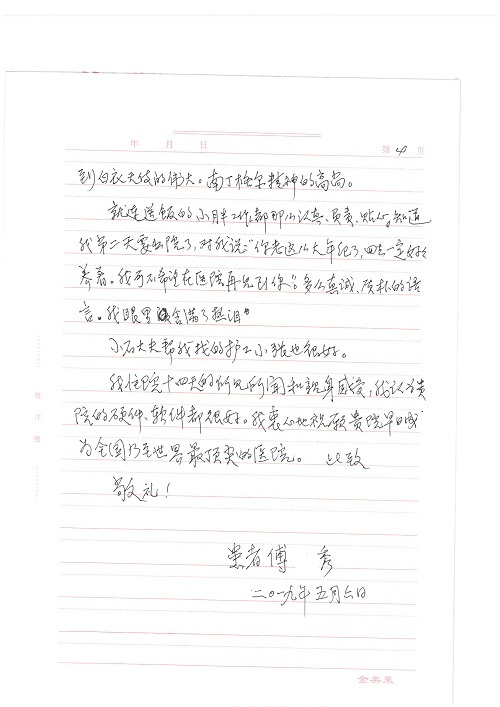 年 月 日
第 4 页
到白衣天使的伟大。南丁格尔精神的高尚。
就连送饭的小胖工作都那么认真、负责、贴心。知道
我第二天要出院了，对我说：“你老这么大年纪了，回去一定好好
养着。我可不希望在医院再见到你”。多么真诚、质朴的语
言。我眼里含满了热泪。
小石大夫帮我找的护工小张也很好。
我住院十四天的所见所闻和亲身感受，我认为贵
院的硬件、软件都很好。我衷心地祝愿贵院早日成
为全国乃至世界最顶尖的医院。 此致
敬礼！
患者傅 秀
二〇一九年五月六日
装订线
金奥来